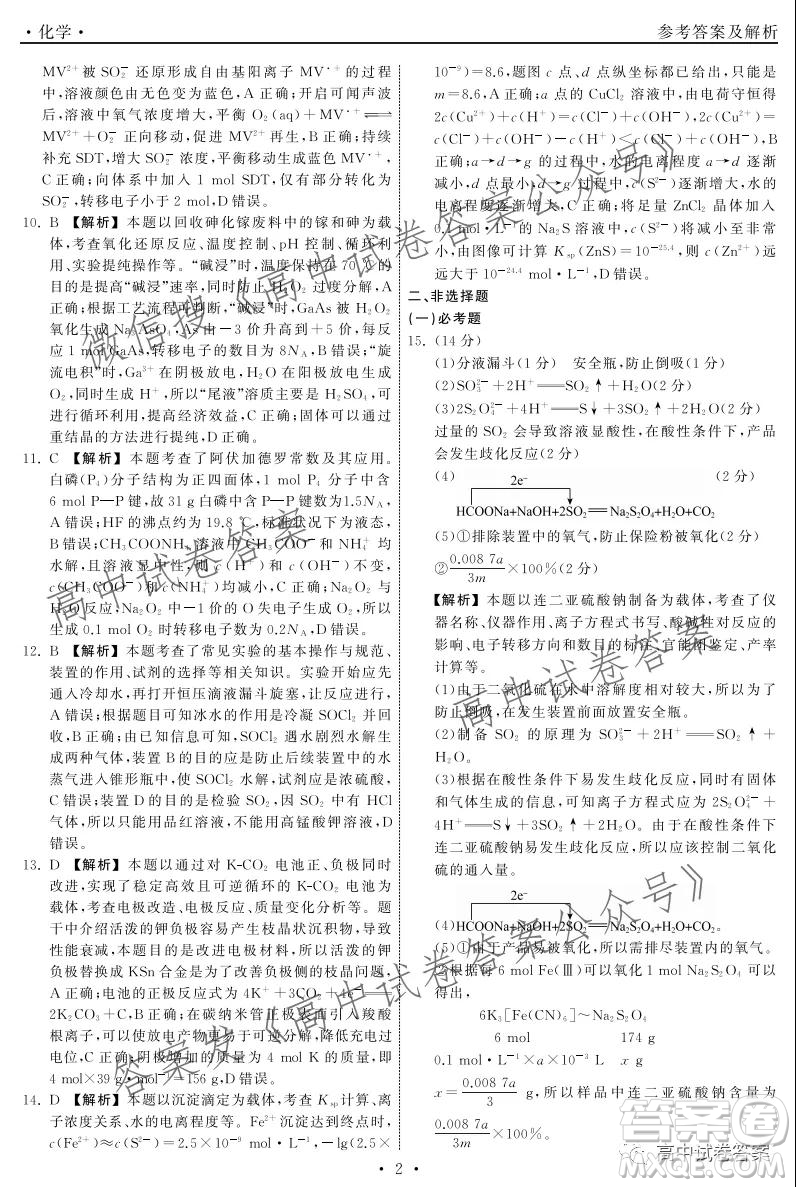 ·化学·
参考答案及解析
MV²⁺被 SO₂⁻ 还原形成自由基阳离子 MV·⁺的过程
中,溶液颜色由无色变为蓝色,A 正确;开启可闻声波
后,溶液中氧气浓度增大,平衡 O₂(aq)+MV·⁺⇌
MV²⁺+O₂⁻ 正向移动,促进 MV²⁺再生,B 正确;持续
补充 SDT,增大 SO₂⁻ 浓度,平衡移动生成蓝色 MV·⁺,
C 正确;向体系中加入 1 mol SDT,仅有部分转化为
SO₂⁻,转移电子小于 2 mol,D 错误。
10. B 【解析】本题以回收砷化镓废料中的镓和砷为载
体,考查氧化还原反应、温度控制、pH 控制、循环利
用、实验提纯操作等。“碱浸”时,温度保持在 70 ℃的
目的是提高“碱浸”速率,同时防止 H₂O₂ 过度分解,A
正确;根据工艺流程可判断,“碱浸”时,GaAs 被 H₂O₂
氧化生成 Na₃AsO₄,As 由-3 价升高到+5 价,每反
应 1 mol GaAs,转移电子的数目为 8Nₐ,B 错误;“旋
流电积”时,Ga³⁺在阴极放电,OH⁻在阳极放电生成
O₂,同时生成 H⁺,所以“尾液”溶质主要是 H₂SO₄,可
进行循环利用,提高经济效益,C 正确;固体可以通过
重结晶的方法进行提纯,D 正确。
11. C 【解析】本题考查了阿伏加德罗常数及其应用。
白磷(P₄)分子结构为正四面体,1 mol P₄ 分子中含
6 mol P—P 键,故 31 g 白磷中含 P—P 键数为1.5Nₐ,
A 错误;HF 的沸点约为 19.8 ℃,标准状况下为液态,
B 错误;CH₃COONH₄ 溶液中 CH₃COO⁻ 和 NH₄⁺ 均
水解,且溶液显中性,则 c(H⁺)和 c(OH⁻)不变,
c(CH₃COO⁻)和c(NH₄⁺)均减小,C 正确;Na₂O₂ 与
H₂O反应,Na₂O₂ 中-1 价的 O 失电子生成 O₂,所以
生成0.1 mol O₂ 时转移电子数为 0.2Nₐ,D 错误。
12. B 【解析】本题考查了常见实验的基本操作与规范、
装置的作用、试剂的选择等相关知识。实验开始应先
通入冷却水,再打开恒压滴液漏斗旋塞,让其充分冷
却,A 错误;根据题目可知冰水的作用是冷凝 SOCl₂ 并回
收,B 正确;由已知信息可知,SOCl₂ 遇水剧烈水解生
成两种气体,装置 B 的目的是防止后续装置中的水
蒸气进入锥形瓶中,使 SOCl₂ 水解,试剂应是浓硫酸,
C 错误;装置 D 的目的是检验 SO₂,因 SO₂ 中有 HCl
气体,所以只能用品红溶液,不能用高锰酸钾溶液,D
错误。
13. D 【解析】本题以通过对 K-CO₂ 电池正、负极同时
改进,实现了稳定高效且可逆循环的 K-CO₂ 电池为
载体,考查电极改造、电极反应、质量变化分析等。题
干中介绍活泼的钾负极容易产生枝晶状沉积物,导
致失效,本题目的是改进电极材料,所以活泼的钾
负极使用 KSn 合金是为了改善负极侧的枝晶问题,
A 正确;电池的正极反应式为 4K⁺+3CO₂+4e⁻══
2K₂CO₃+C,B 正确;在碳纳米管正极表面引入羧酸
根离子,可以更好地分散活性物质钾离子,降低充电过
电位,C 正确;阴极增加的质量为 4 mol K 的质量,即
4 mol×39 g·mol⁻¹=156 g,D 错误。
14. D 【解析】本题以沉淀滴定为载体,考查了 Kₛₚ计算、离
子浓度关系、水的电离程度等。Fe²⁺沉淀到达终点时,
c(Fe²⁺)=c(S²⁻)=2.5×10⁻⁹ mol·L⁻¹,-lg(2.5×
10⁻⁹)=8.6,题图 c 点、d 点纵坐标都已给出,只能是
m=8.6,A正确;a 点的 CuCl₂ 溶液中,由电荷守恒得
2c(Cu²⁺)+c(H⁺)=c(Cl⁻)+c(OH⁻),2c(Cu²⁺)=
c(Cl⁻)+c(OH⁻)-c(H⁺)<c(Cl⁻)+c(OH⁻),B
正确;a→d→g 的过程中,水的电离程度 a 逐渐
减小,d 点最小,d→g 过程中,c(S²⁻)逐渐增大,水的
电离程度逐渐增大,C 正确;将足量 ZnCl₂ 晶体加入
0.1 mol·L⁻¹的 Na₂S 溶液中,c(S²⁻)将减小至非常
小,由图像可计算 Kₛₚ(ZnS)=10⁻²⁵·⁴,则 c(Zn²⁺)远
远大于 10⁻²⁴·⁴ mol·L⁻¹,D 错误。
二、非选择题
(一)必考题
15. (14 分)
(1)分液漏斗(1 分) 安全瓶,防止倒吸(1 分)
(2)SO₃²⁻+2H⁺══SO₂↑+H₂O(2 分)
(3)2S₂O₄²⁻+4H⁺══S↓+3SO₂↑+2H₂O(2 分)
过量的 SO₂ 会导致溶液显酸性,在酸性条件下,产品
会发生歧化反应(2 分)
(4) (2 分)
2e⁻
HCOONa+NaOH+2SO₂══Na₂S₂O₄+H₂O+CO₂
(5)①排除装置中的氧气,防止保险粉被氧化(2 分)
②0.008 7a/3m×100%(2 分)
【解析】本题以连二亚硫酸钠制备为载体,考查了仪
器名称、仪器作用、离子方程式书写、酸碱性对反应的
影响、电子转移方向和数目的标注、官能图鉴定、产率
计算等。
(1)由于二氧化硫在水中溶解度相对较大,所以为了
防止倒吸,在发生装置前面放置安全瓶。
(2)制备 SO₂ 的原理为 SO₃²⁻+2H⁺══SO₂↑+
H₂O。
(3)根据在酸性条件下易发生歧化反应,同时有固体
和气体生成的信息,可知离子方程式为 2S₂O₄²⁻+
4H⁺══S↓+3SO₂↑+2H₂O;由于在酸性条件下
连二亚硫酸钠易发生歧化反应,所以应控制二氧化
硫的通入量。
2e⁻
(4)HCOONa+NaOH+2SO₂══Na₂S₂O₄+H₂O+CO₂。
(5)①由于产品易被氧化,所以需排尽装置内的氧气。
②根据每 6 mol Fe(Ⅲ)可以氧化 1 mol Na₂S₂O₄ 可以
得出,
6K₃[Fe(CN)₆]~Na₂S₂O₄
6 mol 174 g
0.1 mol·L⁻¹×a×10⁻³ L x g
x=0.008 7a/3 g,所以样品中连二亚硫酸钠含量为
0.008 7a/3m×100%。
·2·
微信搜《高中试卷答案公众号》
高中试卷答案
高中试卷答案
答案发《高中试卷答案公众号》
高中试卷答案
答案圈
MXQE.COM